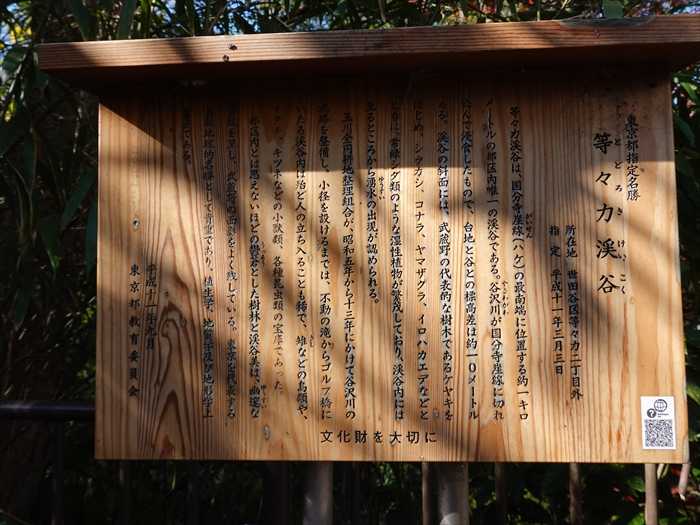 東京都指定名勝
等々力渓谷
とどろきけいこく
所在地 世田谷区等々力二丁目外
指定 平成十一年三月三日
等々力渓谷は、国分寺崖線(ハケ)の最南端に位置する約一キロ
がいせん
メートルの都区内唯一の渓谷である。谷沢川が国分寺崖線に切れ
やざわがわ
込んで浸食したもので、台地と谷との標高差は約一〇メートル
ある。渓谷の斜面には、武蔵野の代表的な樹木であるケヤキを
はじめ、シラカシ、コナラ、ヤマザクラ、イロハカエデなどと
常緑シダ類のような湿性植物が繁茂しており、渓谷内には
至るところから湧水の出現が認められる。
ゆうすい
玉川全円耕地整理組合が、昭和五年から十三年にかけて谷沢川の
流路を整備し、小径を設けるまでは、不動の滝からゴルフ橋に
いたる渓谷内は殆ど人の立ち入ることも稀で、雉などの鳥類や、
キツネなどの小獣類、各種昆虫類の宝庫であった。
都区内とは思えないほどの鬱蒼とした樹林と渓谷美は、幽邃な
ゆうすい
を呈し、武蔵野の面影をよく残している。東京を代表する
地域的名勝として貴重であり、植生学、
である。
平成十二年
東京都教育委員会
文化財を大切に